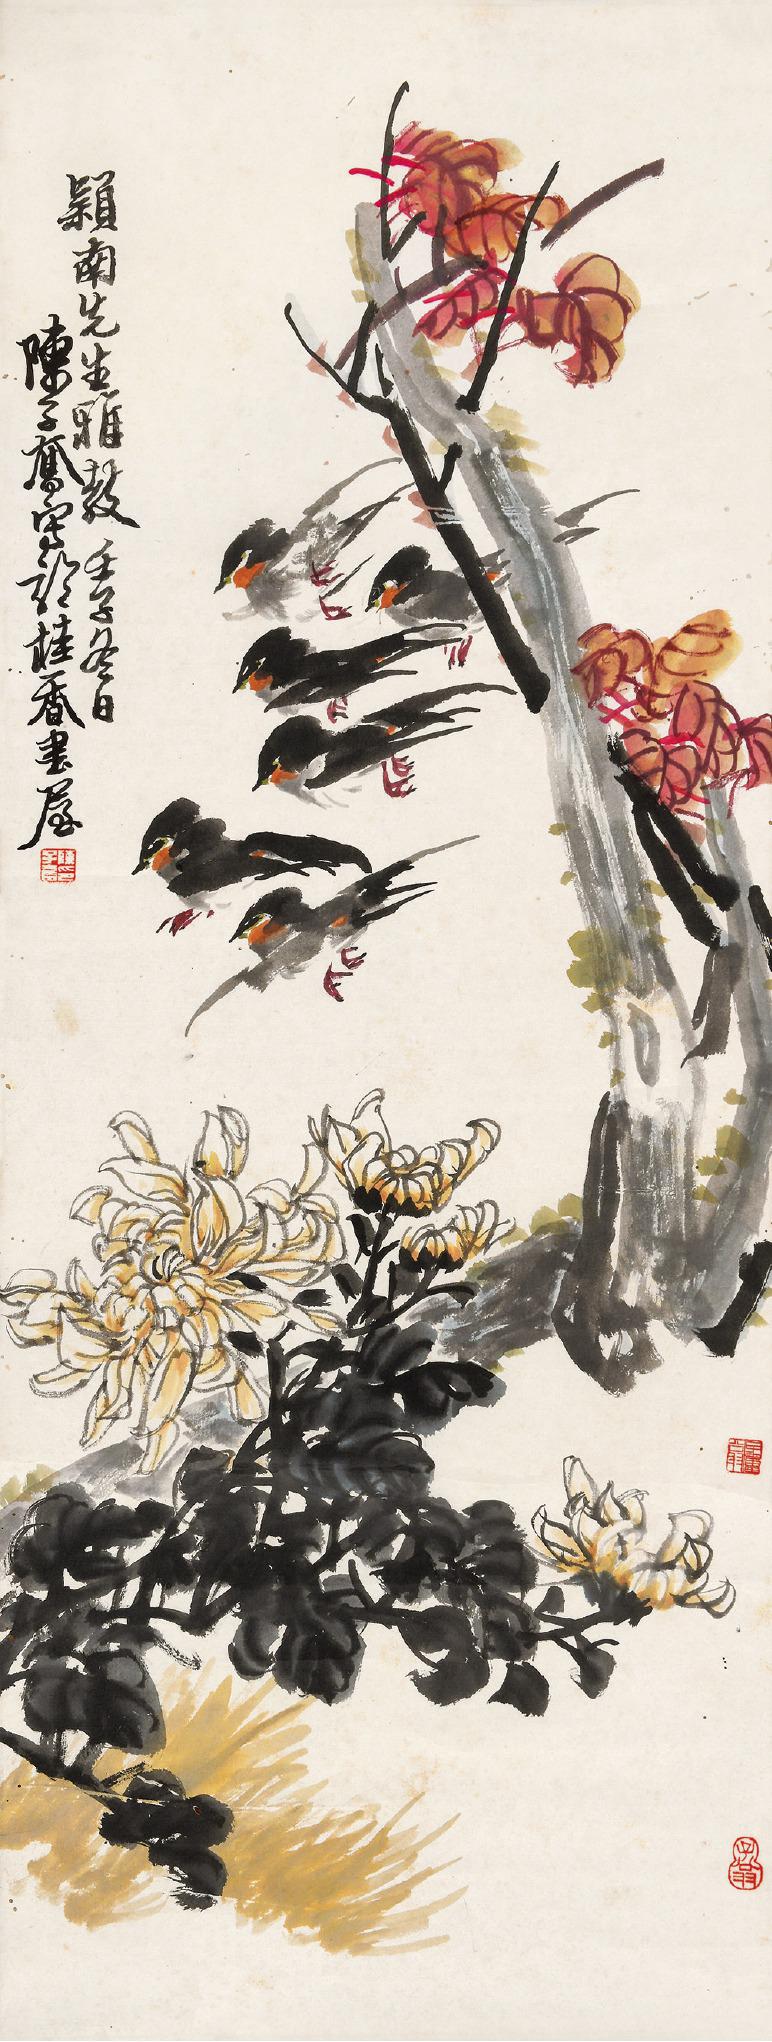 穎南先生雅教 壬子冬日
陳子奮寫於桂香書屋